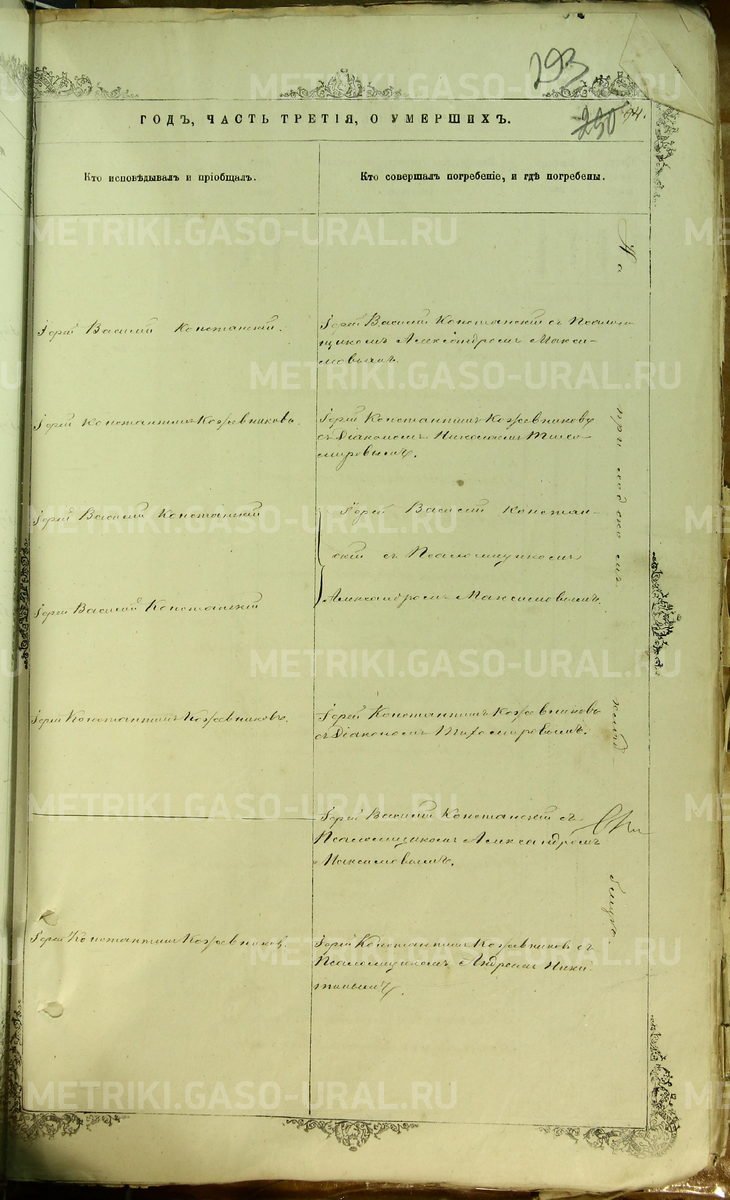 293
230
94.
ГОДЪ, ЧАСТЬ ТРЕТІЯ, О УМЕРШИХЪ.
Кто исповѣдывалъ и пріобщалъ.
Кто совершалъ погребеніе, и гдѣ погребены.
Іерей Василій Констанскій.
Іерей Василій Констанскій съ Псаломщикомъ Александромъ Максимовымъ.
Іерей Константинъ Кожевниковъ.
Іерей Константинъ Кожевниковъ
съ Діакономъ Николаемъ Тихомировымъ.
Іерей Василій Констанскій
Іерей Василій Констан-
скій съ Псаломщикомъ
Александромъ Максимовымъ.
Іерей Василій Констанскій
Іерей Константинъ Кожевниковъ.
Іерей Константинъ Кожевниковъ
съ Діакономъ Тихомировымъ.
Іерей Василій Констанскій съ
Псаломщикомъ Александромъ
Максимовымъ.
Іерей Константинъ Кожевниковъ.
Іерей Константинъ Кожевниковъ съ
Псаломщикомъ Андреемъ Ники-
тинымъ.
На приходскомъ кладбищѣ.
METRIKI.GASO-URAL.RU